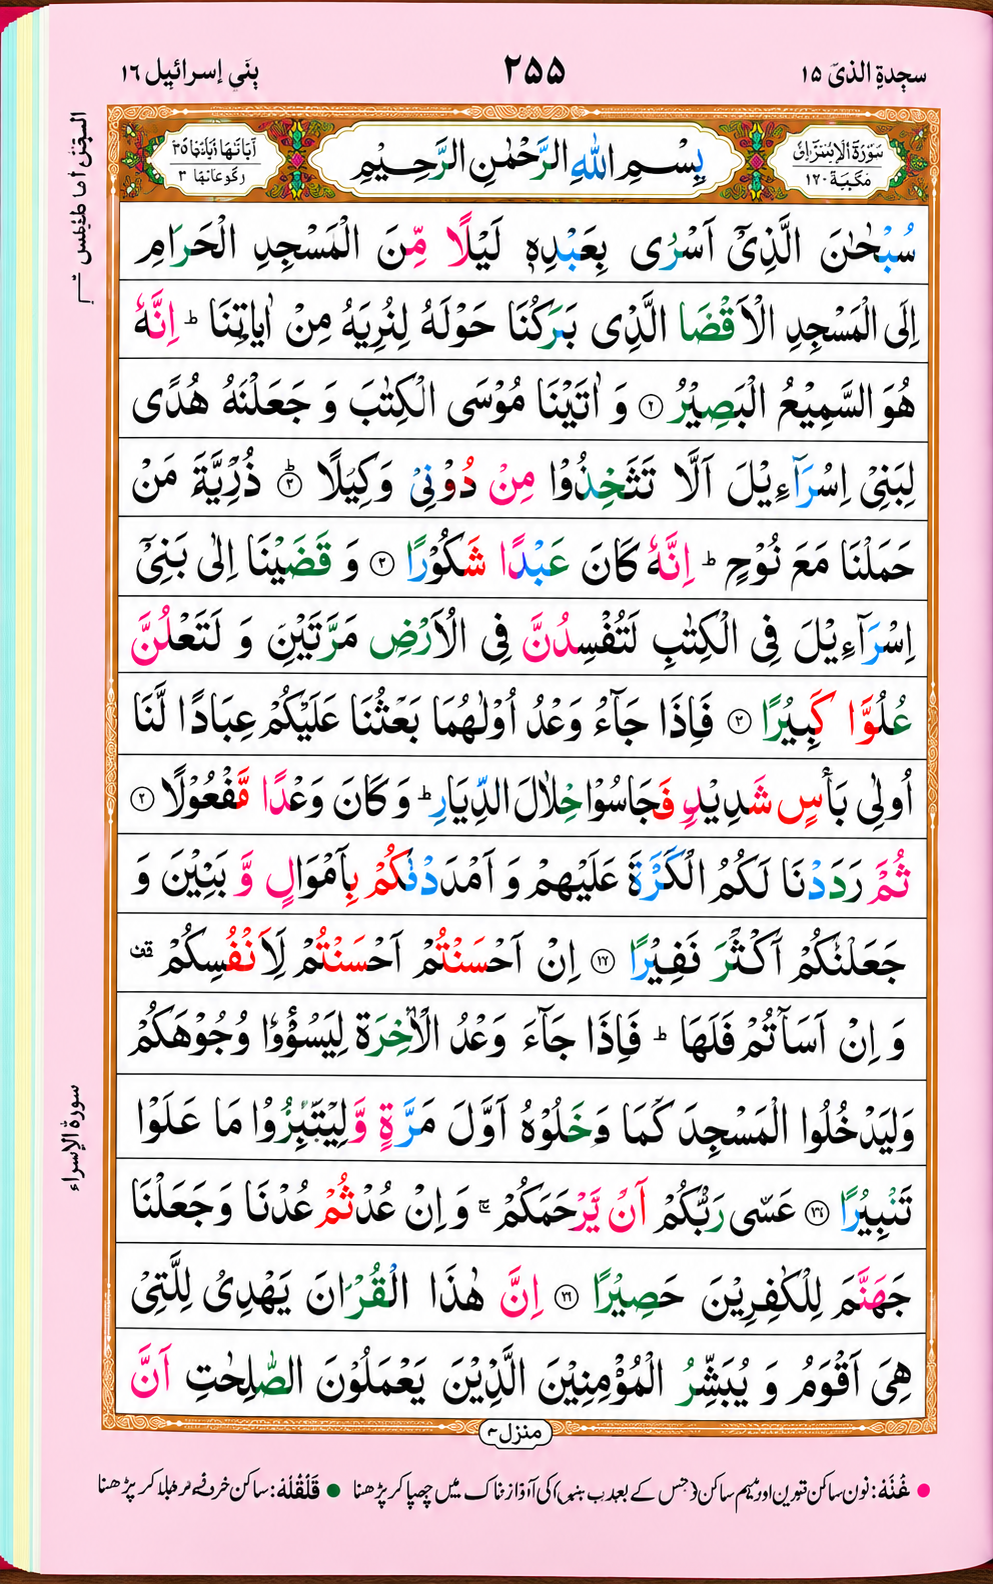 سجدة الذیٓ ١٥
٢٥٥
بنَي إسرائيل ١٦
مكية ١٢٠
بِسْمِ اللهِ الرَّحْمٰنِ الرَّحِيْمِ
سُبْحٰنَ الَّذِىْٓ اَسْرٰى بِعَبْدِهٖ لَيْلًا مِّنَ الْمَسْجِدِ الْحَرَامِ
اِلَى الْمَسْجِدِ الْاَقْصَا الَّذِى بَرَكْنَا حَوْلَهُ لِنُرِيَهُ مِنْ اٰيَاتِنَا ؕ اِنَّهٗ
هُوَ السَّمِيْعُ الْبَصِيْرُ ٢ وَ اٰتَيْنَا مُوْسَى الْكِتٰبَ وَ جَعَلْنَهُ هُدًى
لِبَنِىْ اِسْرَآءِيْلَ اَلَّا تَتَّخِذُوْا مِنْ دُوْنِىْ وَكِيْلًا ٣ ذُرِّيَّةَ مَنْ
حَمَلْنَا مَعَ نُوْحٍ ؕ اِنَّهٗ كَانَ عَبْدًا شَكُوْرًا ٣ وَ قَضَيْنَا اِلٰى بَنِىْٓ
اِسْرَآءِيْلَ فِى الْكِتٰبِ لَتُفْسِدُنَّ فِى الْاَرْضِ مَرَّتَيْنِ وَ لَتَعْلُنَّ
عُلُوَّا كَبِيْرًا ٣ فَاِذَا جَآءُ وَعْدُ اُوْلٰهُمَا بَعَثْنَا عَلَيْكُمْ عِبَادًا لَّنَا
اُولِى بَأْسٍ شَدِيْدٍ فَجَاسُوْا خِلٰالَ الدِّيَارِ ؕ وَ كَانَ وَعْدًا مَّفْعُوْلًا ٢
ثُمَّ رَدَدْنَا لَكُمُ الْكَرَّةَ عَلَيْهِمْ وَ اَمْدَدْنٰكُمْ بِاَمْوَالٍ وَّ بَنِيْنَ وَ
جَعَلْنٰكُمْ اَكْثَرَ نَفِيْرًا ١٧ اِنْ اَحْسَنْتُمْ اَحْسَنْتُمْ لِاَنْفُسِكُمْ
وَ اِنْ اَسَآتُمْ فَلَهَا ؕ فَاِذَا جَآءَ وَعْدُ الْاٰخِرَةِ لِيَسُؤْٗا وُجُوْهَكُمْ
وَلِيَدْخُلُوا الْمَسْجِدَ كَمَا وَخَلُوْهُ اَوَّلَ مَرَّةٍ وَّلِيْتَبِّرُوْا مَا عَلَوْا
تَنْبِيْرًا عَسٰى رَبُّكُمْ اَنْ يَّرْحَمَكُمْ وَ اِنْ عُدْتُمْ عُدْنَا وَجَعَلْنَا
جَهَنَّمَ لِلْكٰفِرِيْنَ حَصِيْرًا اِنَّ هٰذَا الْقُرْاٰنَ يَهْدِىْ لِلَّتِىْ
هِىَ اَقْوَمُ وَ يُبَشِّرُ الْمُؤْمِنِيْنَ الَّذِيْنَ يَعْمَلُوْنَ الصّٰلِحٰتِ اَنَّ
سورة الإسراء
منزل ٤
غُنّه: نون ساکن اور میم ساکن کی آواز ناک میں چھپا کر پڑھنا قَلْقَلَه: ساکن پڑھنا